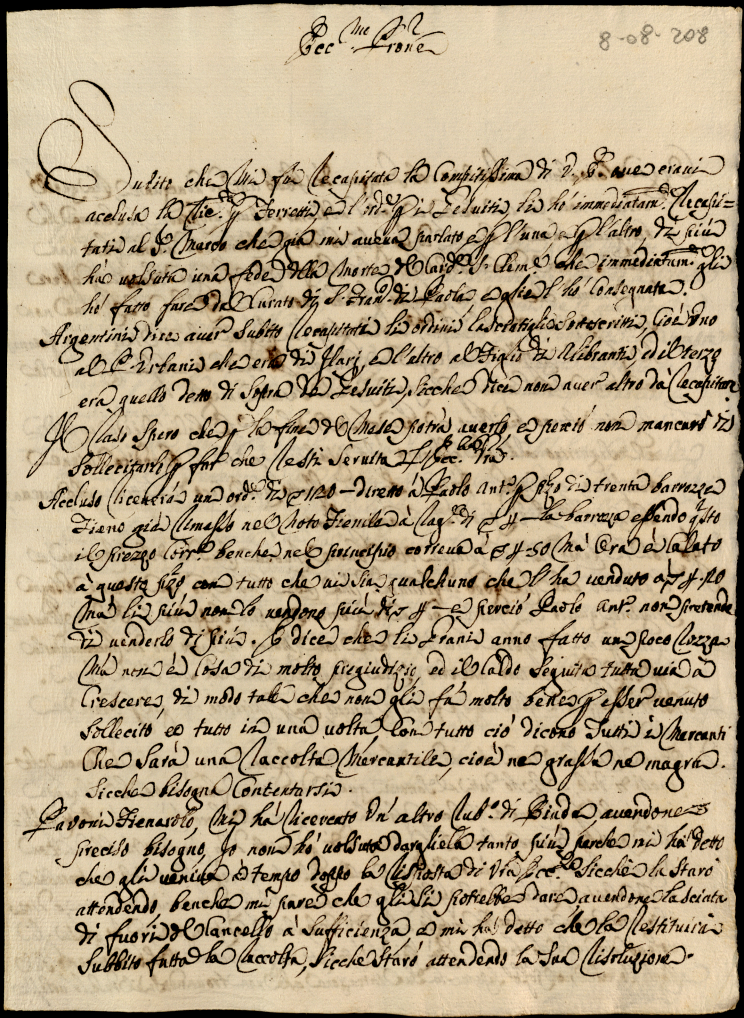 8-08-208
Ecc.mo Sr
Prone
Subito che Mi fu recapitata la Compitissima di V. E. ove eravi
aclusa la lic.a p Ferretti, e l'ord.e p i Gesuiti, li hò immediatam.e Recapi=
tati al S.r Marco che già mi aveva parlato e p l'una e p l'altro, di più
hà volsuta una fede della Morte del Card.e S. Clem.e che immediatam.e gli
hò fatto fare dal Curato di S. Fran.co di Paola e glie l'hò Consegnata.
Argentini dice aver Subito recapitati li ordini lasciatigli Sottoscritti, Cioè uno
al che era di Ilari, e l'altro al Figlio di Alibranti ed il terzo
era quello detto di Sopra de Gesuiti, Sicche dice non aver altro da recapitare
Il Caso Spero che p la fine del Mese potrà averlo e perciò non mancarò di
Sollecitarli p far che resti Servita l'Ecc.za Vra.
Accluso riceverà un ord.e di 120 - diretto à Paolo Ant.o p di trenta barrozze
Fieno già rimesso nel Noto Fienile à rag.e di 4 - la barrozza essendo q.sto
il prezzo corr.e benche nel principio correva à 4-50 Mà Ora è Calato
à questo con tutto che vi Sia qualchuno che l'hà venduto à 4-20
Mà li più non lo vendono più di 4 - e perciò Paolo Ant.o non pretende
di venderlo di più. E dice che li Grani anno fatto un poco
Mà non è Cosa di molto pregiudizio, ed il Caldo Seguita tutta via à
Crescere, di modo tale che non gli fà molto bene p esser venuto
Sollecito, e tutto in una volta, Con tutto ciò dicono Tutti i Mercanti
Che Sarà una raccolta Mercantile, cioè ne grassa ne magra.
Sicche bisogna Contentarsi.
Pavoni Fienarolo, Mi hà ricercato Un' altro Rub.o di Biada, avendone
preciso bisogno, Io non hò volsuto dargliela tanto più perche mi hà detto
che gli veniva à tempo doppo la risposta di Vra Ecc.za Sicche la Starò
attendendo, benche mi pare che gli Si potrebbe dare avendone lasciata
di fuori del Cancello à Sufficienza, e mi hà detto che la restituirà
Subbito fatta la raccolta, Sicche Starò attendendo la Sua risoluzione.